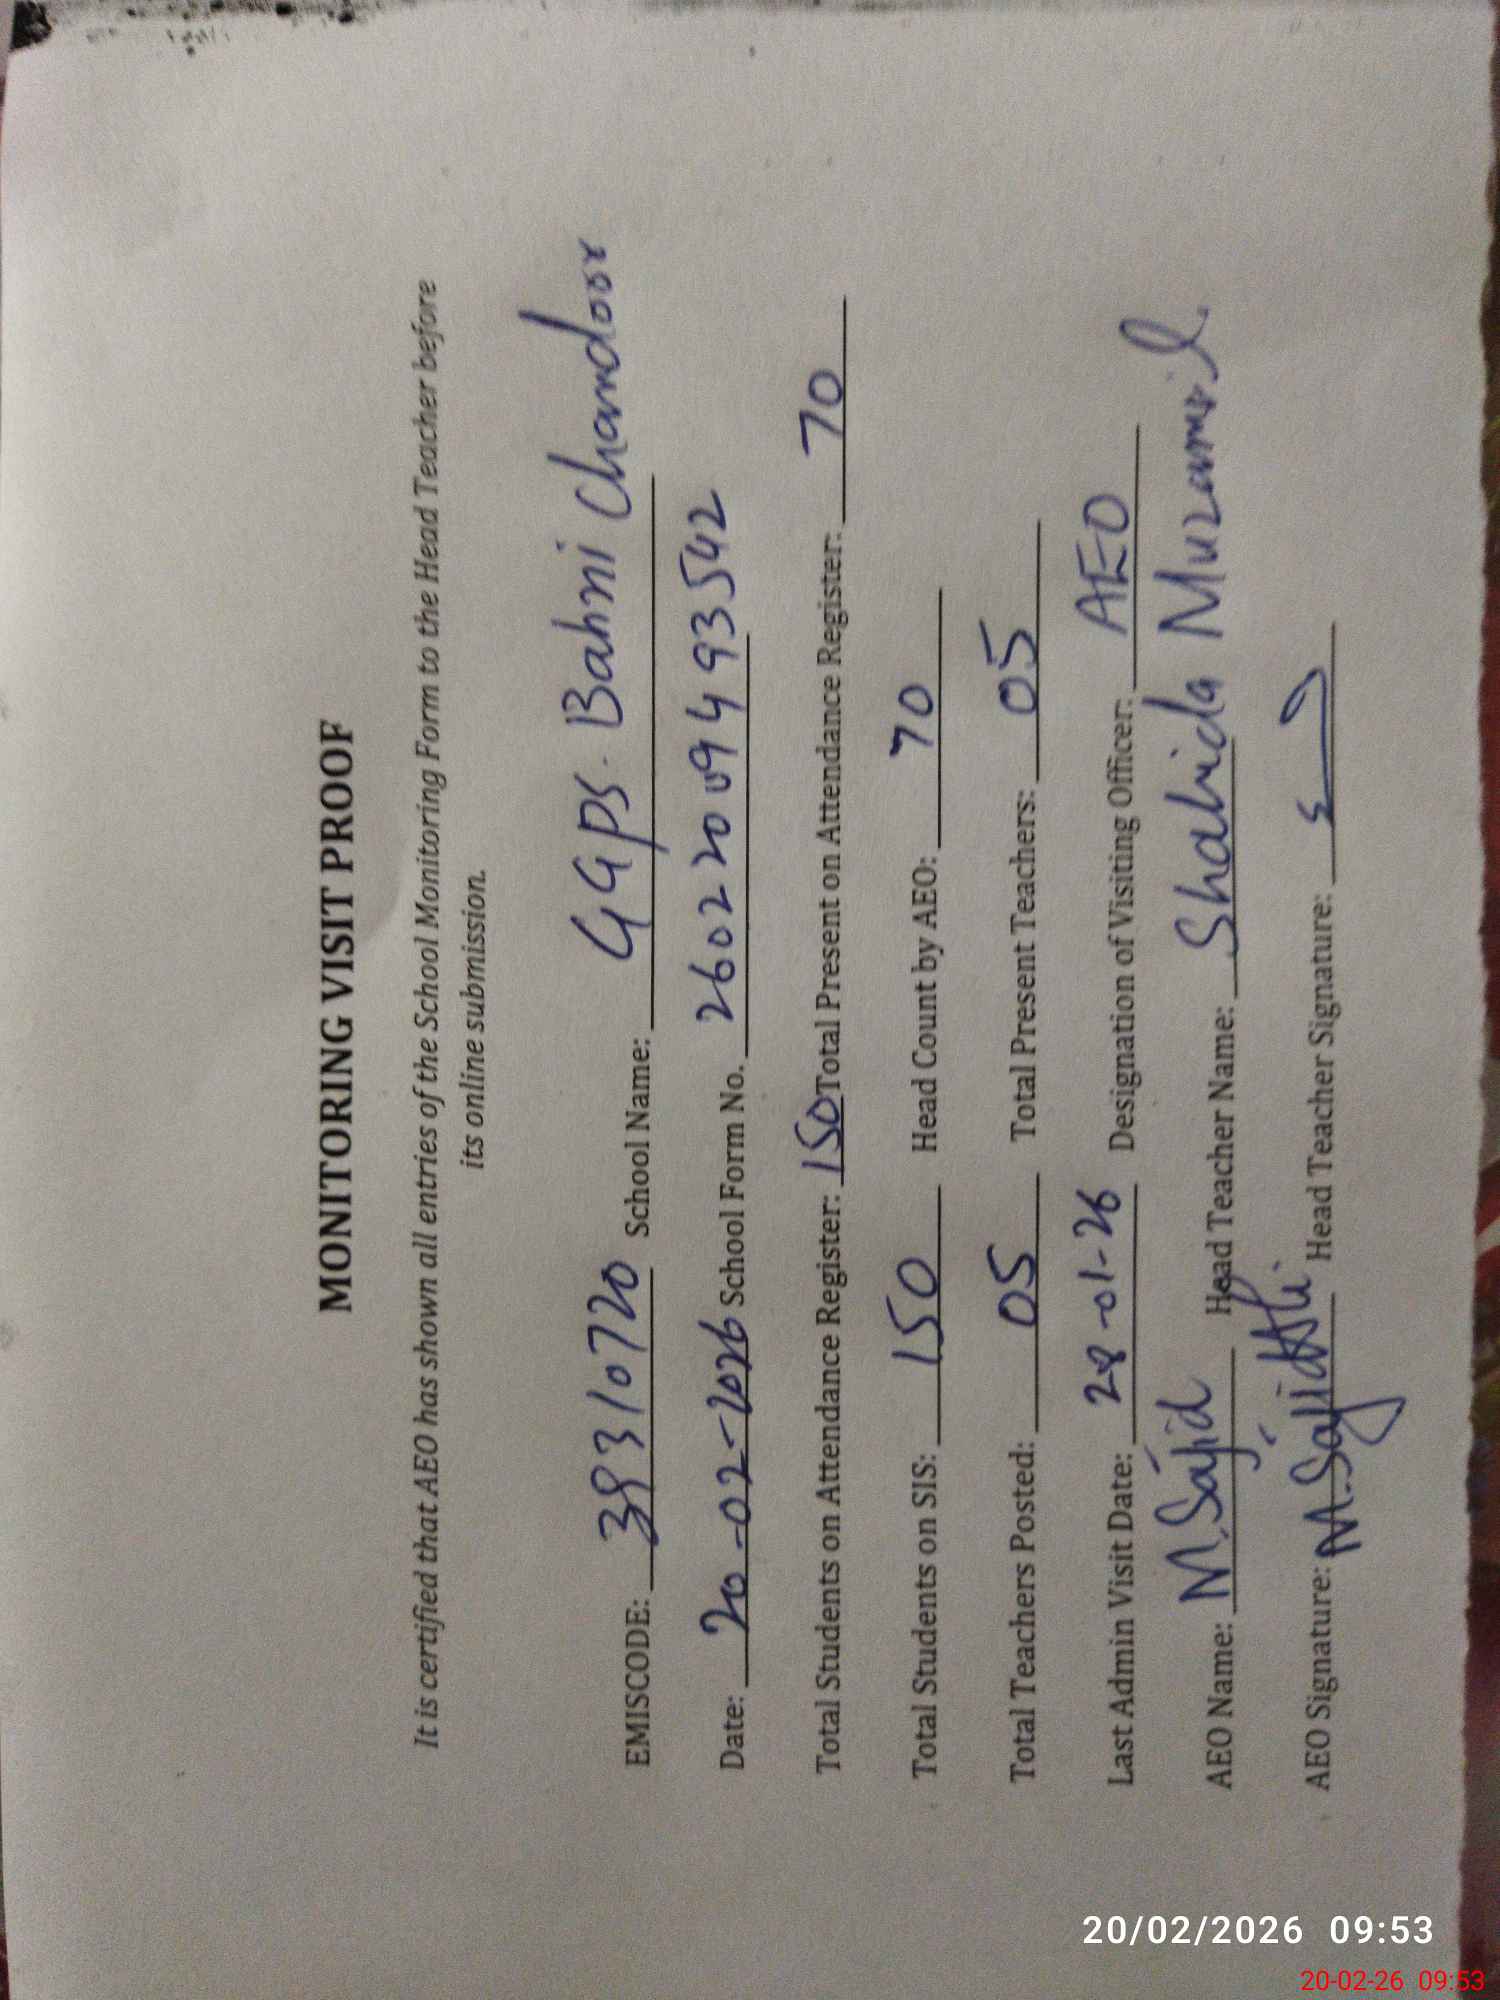 MONITORING VISIT PROOF
It is certified that AEO has shown all entries of the School Monitoring Form to the Head Teacher before
its online submission.
EMISCODE: 38310720 School Name: GGPS. Bahni Chandoor
Date: 20-02-2026 School Form No. 26022009493542
Total Students on Attendance Register: 150 Total Present on Attendance Register: 70
Total Students on SIS: 150 Head Count by AEO: 70
Total Teachers Posted: 05 Total Present Teachers: 05
Last Admin Visit Date: 28-01-26 Designation of Visiting Officer: AEO
AEO Name: M. Sajid Head Teacher Name: Shahida Muzamil
AEO Signature: M. Sajid Ali Head Teacher Signature:
20/02/2026 09:53
20-02-26 09:53